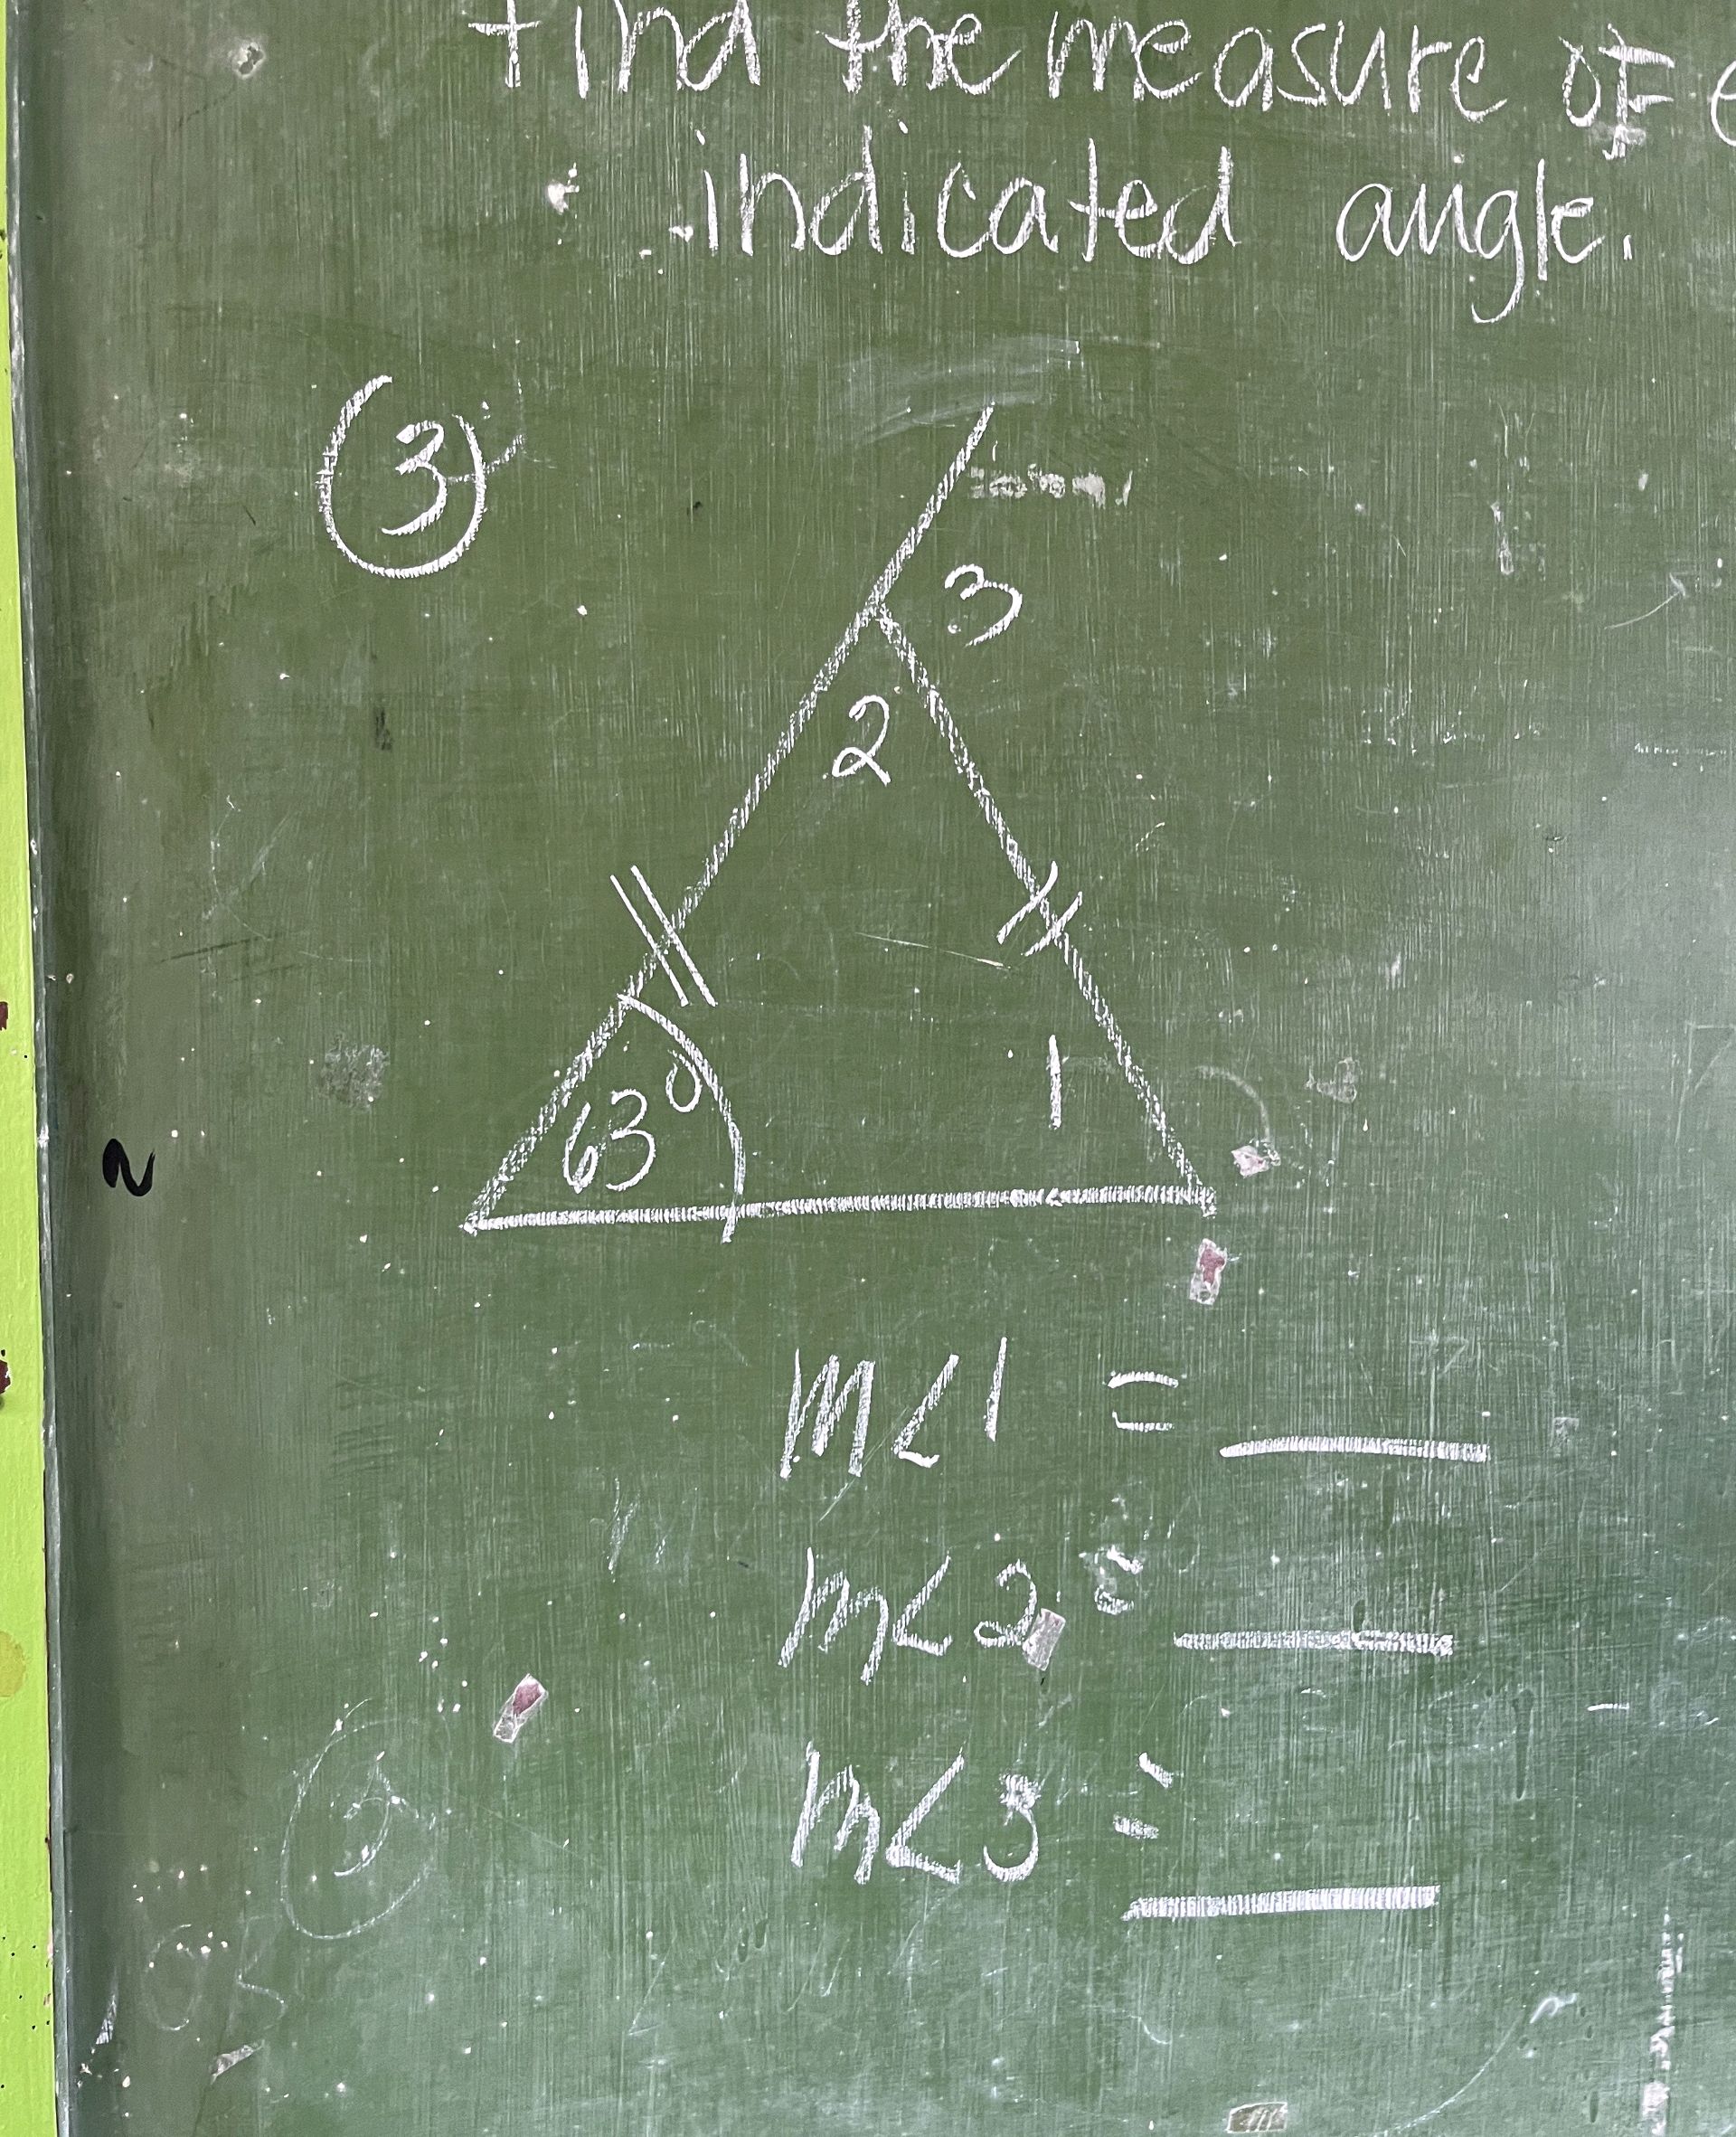 Find the measure of
indicated angle.
3
3
2
63°
1
m<1 = ____
m<2 = ____
m<3 = ____